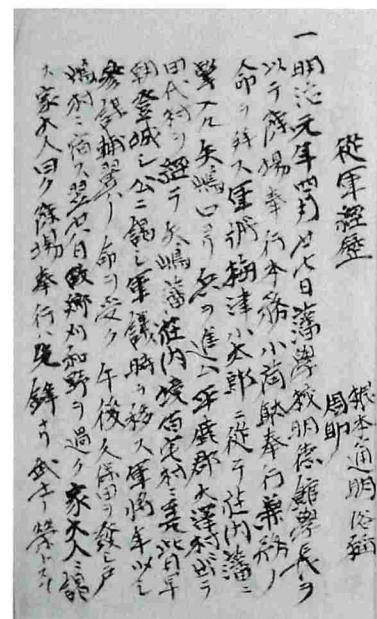 従軍経歴
根本通明俗称
周助
一明治元年四月廿七日藩学校明徳館学長ヲ
以テ陣場奉行本務小荷駄奉行兼務ノ
命ヲ拝ス軍将梅津小太郎ニ従テ荘内藩ニ
撃入ル矢嶋口ヨリ兵ヲ進ム平鹿郡大沢村ヨリ
田代村ヲ経テ矢嶋藩荘内境百宅村ニ
朝登城シ公ニ謁シ軍議時ヲ移ス軍将年少シ
参謀補翼ノ命ヲ受ク午後久保田ヲ発シ戸
嶋村ニ宿ス翌廿八日故郷刈和野ヲ過ク家大人ニ謁
ス家大人曰ク陣場奉行ハ先鋒ナリ武士ノ栄